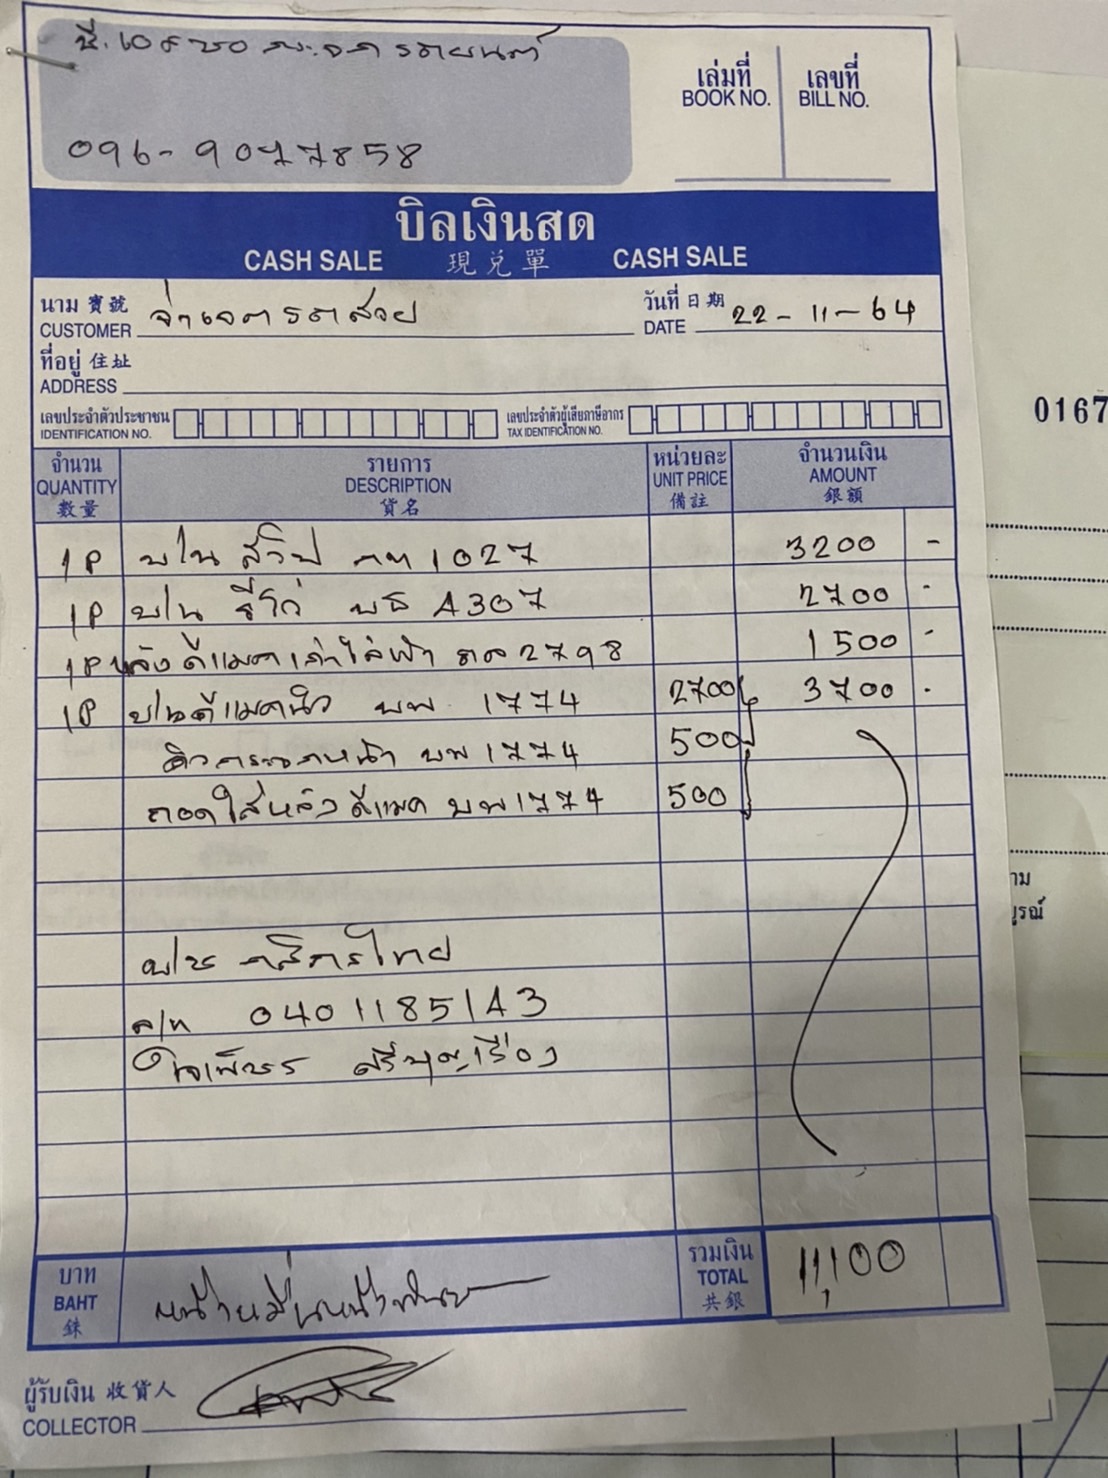 ซี.เอส.ซอ กระจกรถยนต์
096-9077858
เล่มที่ เลขที่
BOOK NO. BILL NO.
บิลเงินสด
CASH SALE 現兑單 CASH SALE
นาม 寶號 วันที่ 日期
CUSTOMER จ่าเจตรถสวย DATE 22-11-64
ที่อยู่ 住址
ADDRESS
เลขประจำตัวประชาชน เลขประจำตัวผู้เสียภาษีอากร
IDENTIFICATION NO. TAX IDENTIFICATION NO.
จำนวน รายการ หน่วยละ จำนวนเงิน
QUANTITY DESCRIPTION UNIT PRICE AMOUNT
數量 貨名 備註 銀額
1P บ/น สวิฟ กท 1027 3200 -
1P บ/น รีโว่ บธ A307 2700 -
1P หลังดีแมคเก่าใส่ฝ้า 2798 1500 -
1P บ/นดีแมคนิว บพ 1774 2700 3700 -
คิ้วกระจกหน้า บพ 1774 500
ถอดใส่หลังดีแมค บพ 1774 500
บ/ช กสิกรไทย
ล/ท 0401185143
ใจเพ็ชร ศรีบุญเรือง
บาท รวมเงิน
BAHT TOTAL 11,100
銖 共銀
ผู้รับเงิน 收貨人
COLLECTOR
0167
าม
บูรณ์